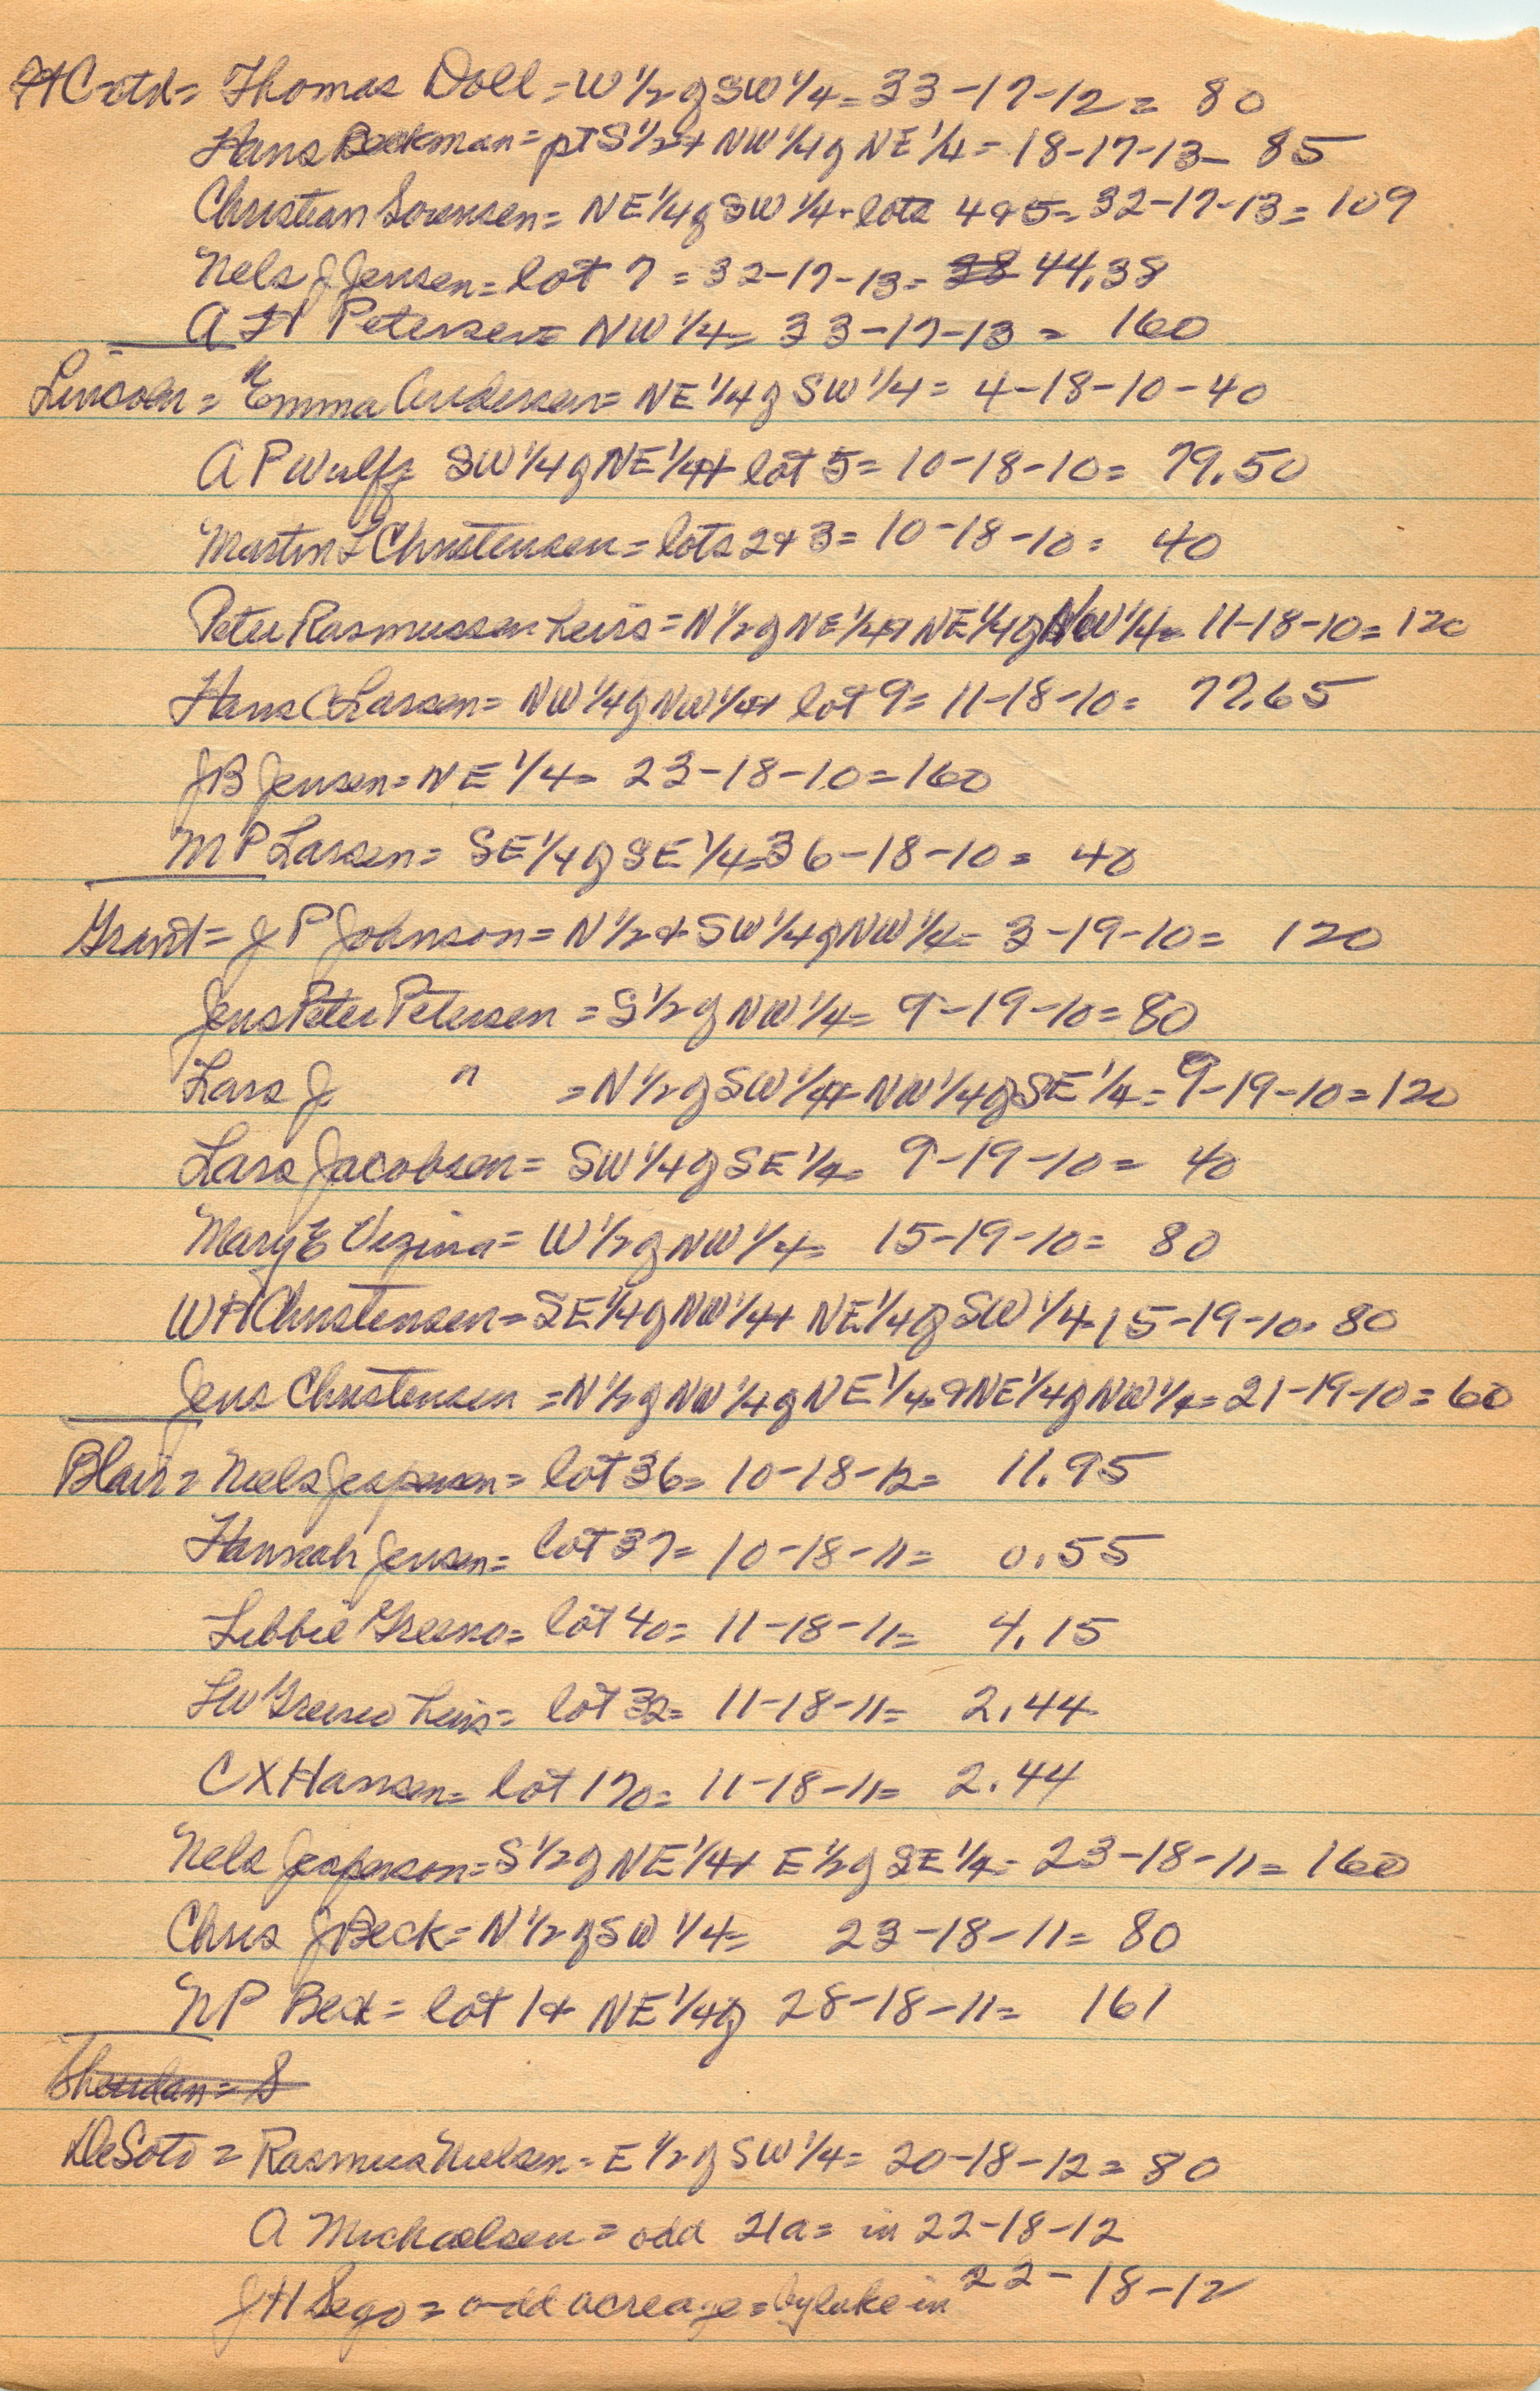 Ft C ctd = Thomas Doll = W 1/2 of SW 1/4 = 33-17-12 = 80
Hans Beekman = pt S 1/2 + NW 1/4 of NE 1/4 = 18-17-13 - 85
Christian Sorensen = NE 1/4 of SW 1/4 + lots 4 + 5 = 32-17-13 = 109
Nels J Jensen = lot 7 = 32-17-13 = 38 44.38
A H Petersen = NW 1/4 = 33-17-13 = 160
Lincoln = Emma Andersen = NE 1/4 of SW 1/4 = 4-18-10 - 40
A P Wulff SW 1/4 of NE 1/4 + lot 5 = 10-18-10 = 79.50
Martin L Christensen = lots 2 + 3 = 10-18-10 = 40
Peter Rasmussen heirs = N 1/2 of NE 1/4 + NE 1/4 of NW 1/4 = 11-18-10 = 120
Hans C Larsen = NW 1/4 of NW 1/4 + lot 9 = 11-18-10 = 77.65
J B Jensen = NE 1/4 = 23-18-10 = 160
M P Larsen = SE 1/4 of SE 1/4 = 36-18-10 = 40
Grant = J P Johnson = N 1/2 + SW 1/4 of NW 1/4 = 3-19-10 = 120
Jens Peter Petersen = S 1/2 of NW 1/4 = 9-19-10 = 80
Lars J " = N 1/2 of SW 1/4 + NW 1/4 of SE 1/4 = 9-19-10 = 120
Lars Jacobsen = SW 1/4 of SE 1/4 = 9-19-10 = 40
Mary E Vezina = W 1/2 of NW 1/4 = 15-19-10 = 80
W H Christensen = SE 1/4 of NW 1/4 + NE 1/4 of SW 1/4 = 15-19-10 = 80
Jens Christensen = N 1/2 of NW 1/4 of NE 1/4 + NE 1/4 of NW 1/4 = 21-19-10 = 60
Blair = Niels Jespersen = lot 36 = 10-18-12 = 11.95
Hannah Jensen = lot 37 = 10-18-11 = 0.55
Libbie Greeno = lot 40 = 11-18-11 = 4.15
L W Greeno heirs = lot 32 = 11-18-11 = 2.44
C X Hansen = lot 170 = 11-18-11 = 2.44
Nels Jesperson = S 1/2 of NE 1/4 + E 1/2 of SE 1/4 = 23-18-11 = 160
Chris J Beck = N 1/2 of SW 1/4 = 23-18-11 = 80
N P Beck = lot 1 + NE 1/4 of 28-18-11 = 161
Sheridan = S
DeSoto = Rasmus Nielsen = E 1/2 of SW 1/4 = 20-18-12 = 80
A Michaelsen = odd 21a = in 22-18-12
J H Sego = odd acreage = by lake in 22-18-12